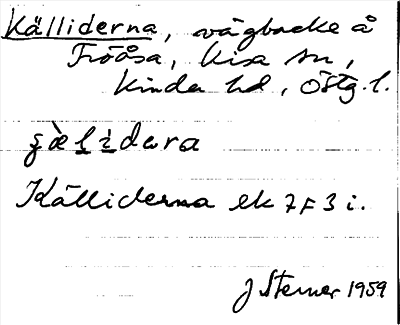 Källiderna, vägbacke å
Fröåsa, Kisa sn,
Kinda hd, Östg. l.
Källiderna ek 7F3i.
J Sterner 1959